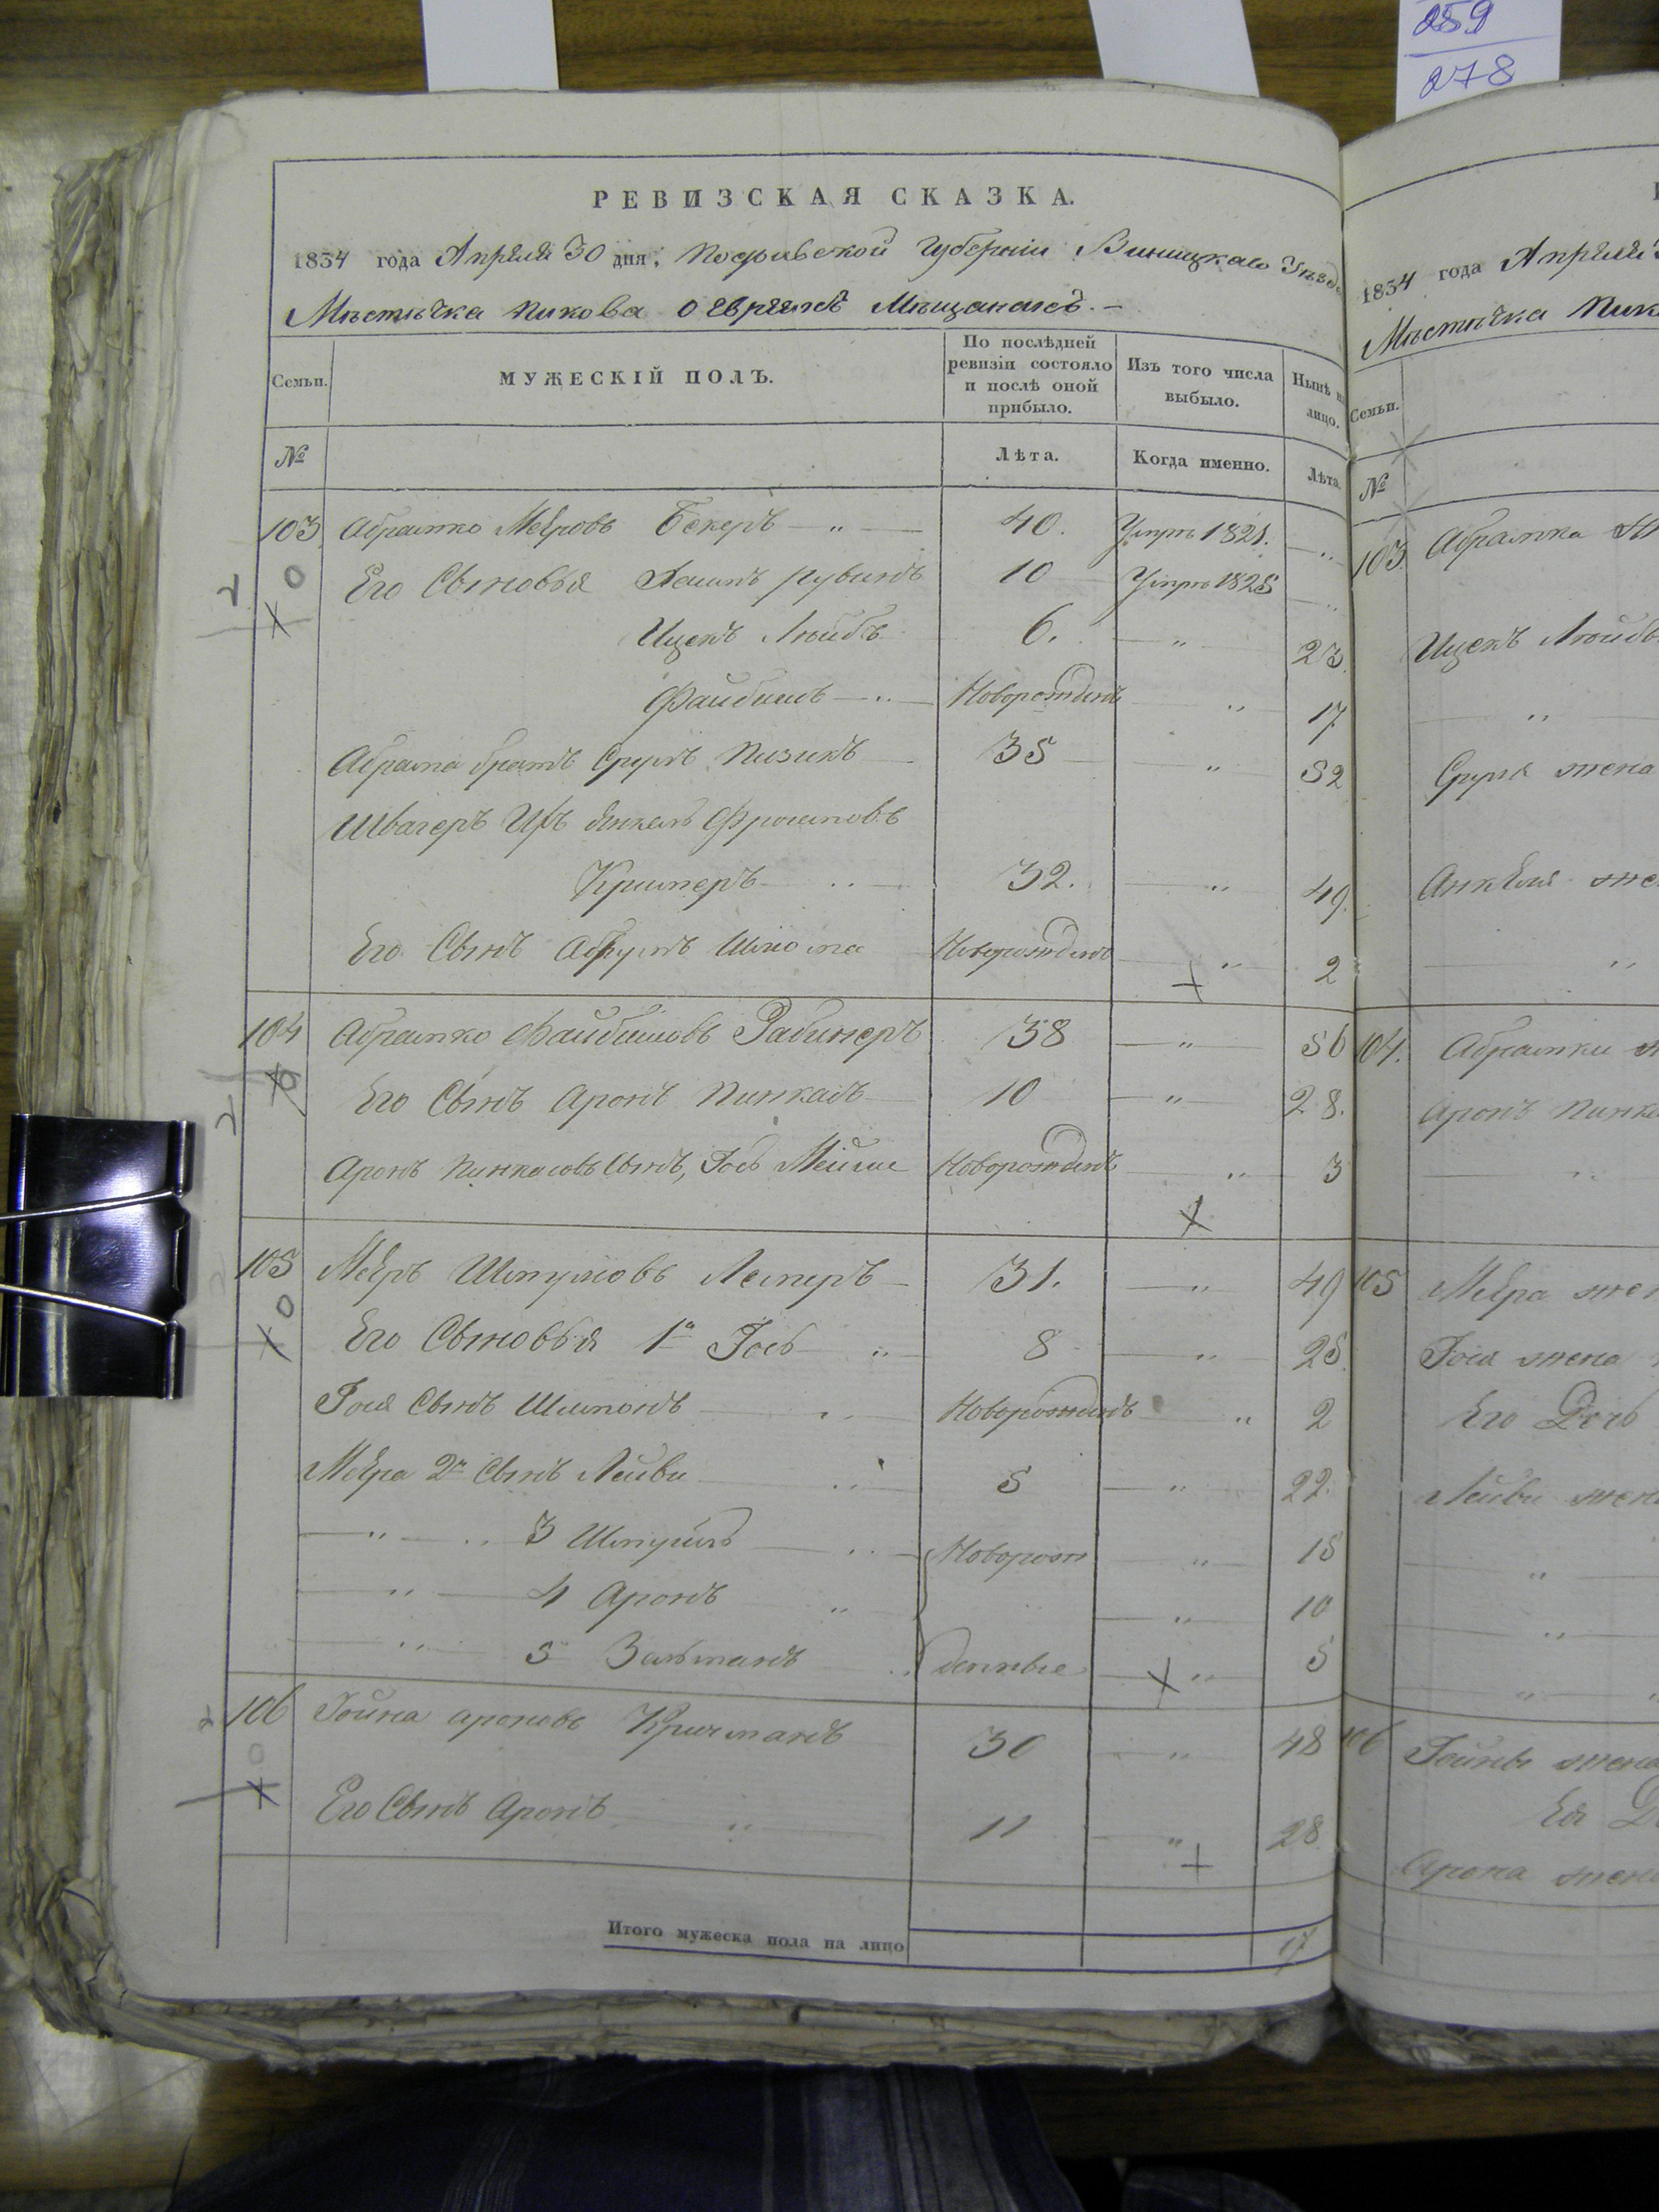 259
278
РЕВИЗСКАЯ СКАЗКА.
1834 года Апреля 30 дня, Подольской Губернии Виницкаго Уезда
Местечка Пикова о евреяхъ Мещанахъ.
Семьи.
МУЖЕСКІЙ ПОЛЪ.
По послѣдней ревизіи состояло и послѣ оной прибыло.
Изъ того числа выбыло.
Нынѣ на лицо.
№
Лѣта.
Когда именно.
Лѣта.
103 Абрамко Меяровъ Бекеръ — " — 40. Умре 1821. — "
Его Сыновья Рувинъ 10 Умре 1825 — "
Ицекъ Лейбъ 6. — " — 23
Файбишъ — " — Новорожденъ — " — 17
Абрама братъ Срулъ Пизикъ 35 — " — 52
Швагеръ Ихъ Янкель Фроимовъ
Кримеръ — " — 32. — " — 49.
Его Сынъ Шлиома Новорожденъ — " — 2
104 Абрамко Файбишовъ Рабинеръ 38 — " — 56
Его Сынъ Аронъ Пинкасъ 10 — " — 28.
Аронъ Пинкасовъ Сынъ, Іось Мейше Новорожденъ — " — 3
105 Меяръ Шмулиовъ 31. — " — 49
Его Сыновья 1й Іось " 8 — " — 25
Іося Сынъ Шлиомъ — " Новорожденъ — " 2
Меяра 2й Сынъ Лейви — " 5 — " — 22.
— " — " 3 Шмуилъ — " — Новорож — " — 15
— " — 4 Аронъ " — " — 10
— " — 5 Зальманъ денные — " — 5
106 Іойна Ароновъ Кричманъ 30 — " — 48
Его Сынъ Аронъ " 11 — " — 28
Итого мужеска пола на лицо 17
1834 года Апреля
Местечка Пик
Семьи.
№
103 Абрамка
Ицекъ Лейбъ
"
Сруля жена
Анкеля же
"
104. Абрамки
Аронъ Пинка
"
105 Меяра жен
Іося жена
Его Дочь
Лейви жен
"
"
"
106 Іойны жена
Ея Д
Арона жена